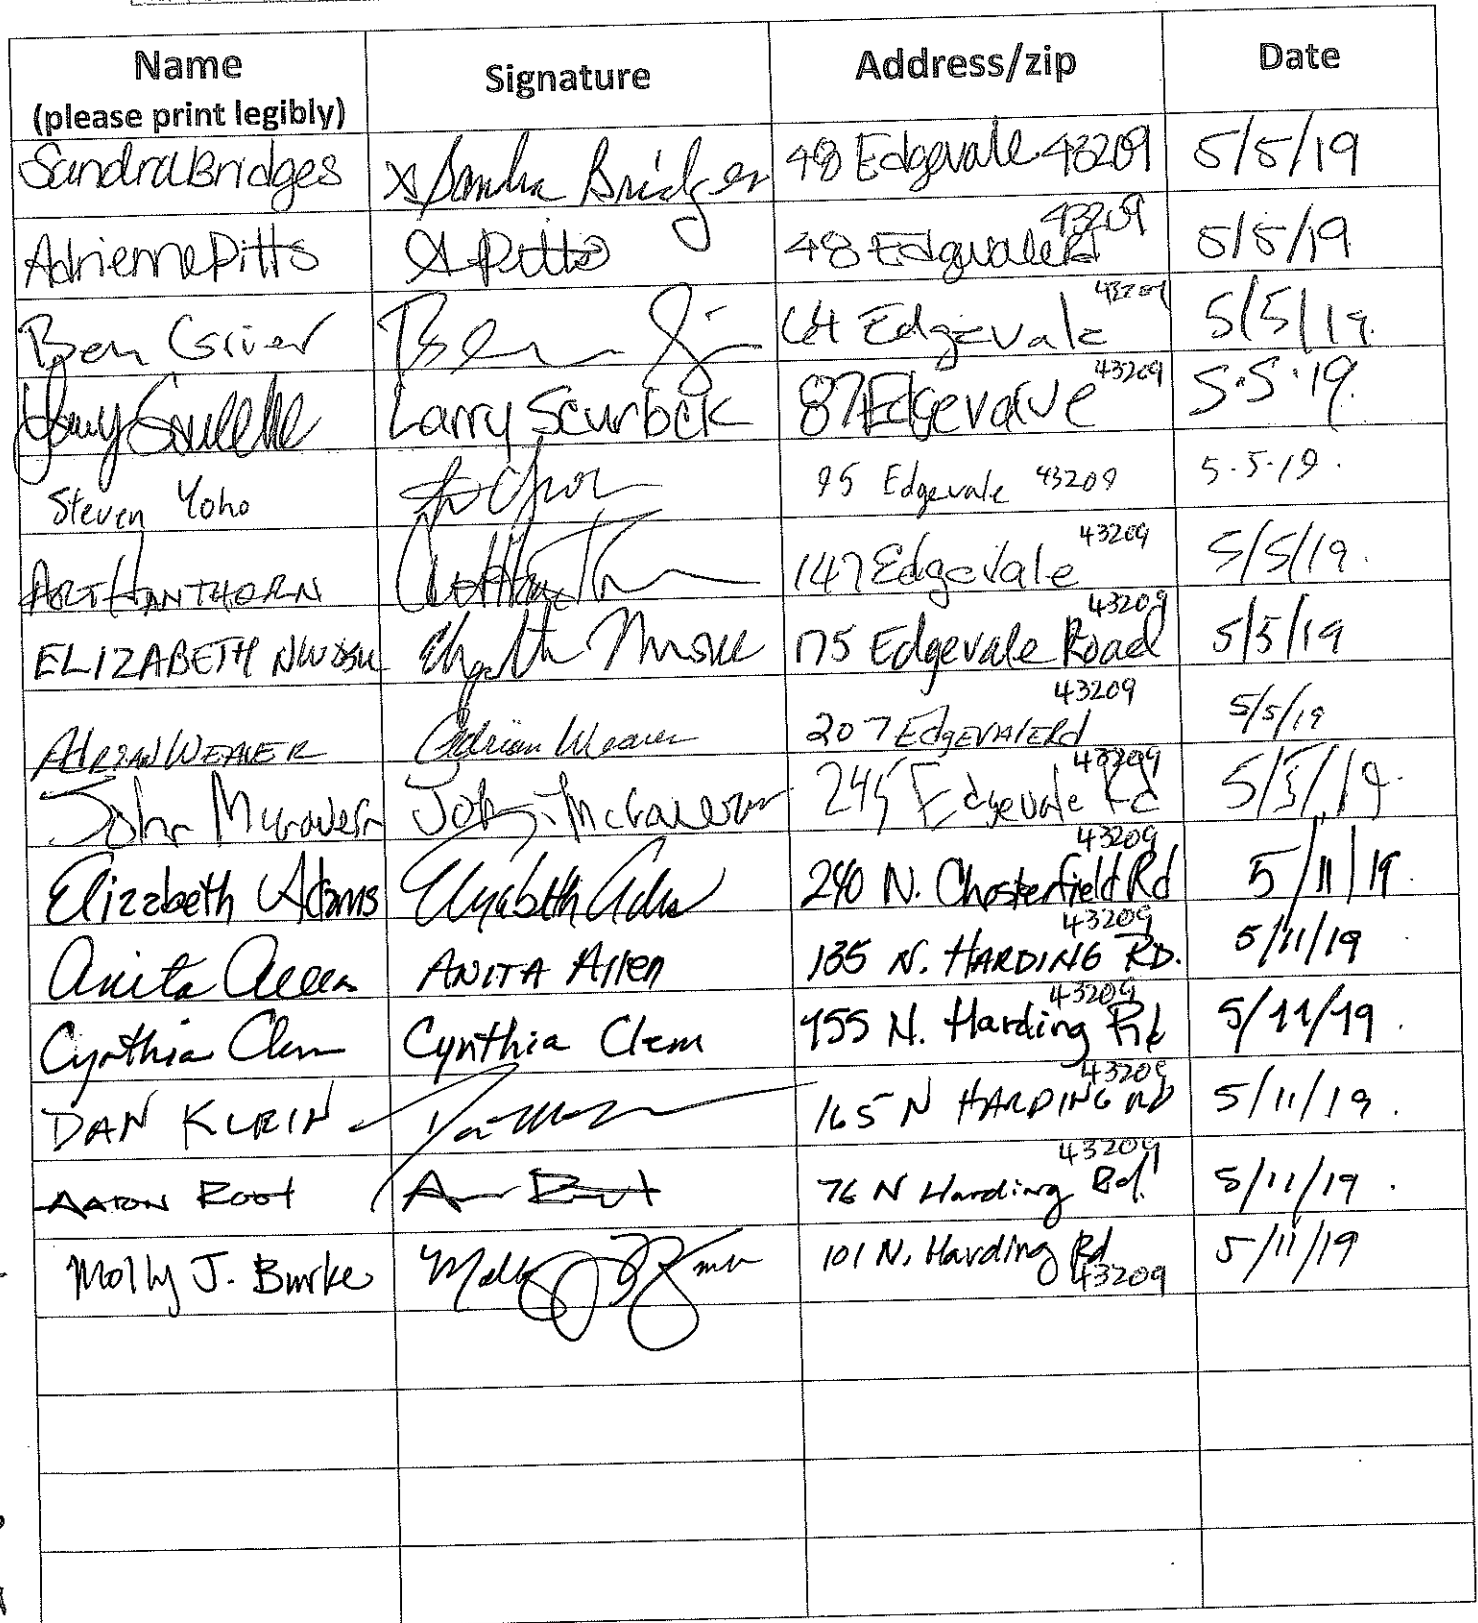 Name Signature Address/zip Date
(please print legibly)
Sandra Bridges x Sandra Bridges 48 Edgevale 43209 5/5/19
Adrienne Pitts A Pitts 48 Edgvale Rd 43209 5/5/19
Ben Griver 64 Edgevale 43209 5/5/19.
Larry Scurlock 87 Edgevalve 43209 5.5.19.
Steven Yoho 95 Edgevale 43209 5.5.19.
ART HANTHORN 147 Edgevale 43209 5/5/19.
ELIZABETH 175 Edgevale Road 43209 5/5/19
ADRIAN WEAVER Adrian Weaver 207 EdgEVALE Rd 43209 5/5/19
John McGovern John McGovern 245 Edgevale Rd 43209 5/5/19.
Elizabeth Adams Elizabeth Adams 240 N. Chesterfield Rd 43209 5/11/19.
Anita Allen ANITA Allen 135 N. HARDING RD. 43209 5/11/19
Cynthia Clem Cynthia Clem 155 N. Harding Rd 43209 5/11/19.
DAN KURIN 165 N HARDING RD 43209 5/11/19.
AARON ROOT 76 N Harding Rd. 43209 5/11/19.
Molly J. Burke Molly J Burke 101 N. Harding Rd 43209 5/11/19